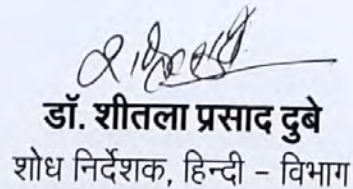 डॉ. शीतला प्रसाद दुबे
शोध निर्देशक, हिन्दी – विभाग